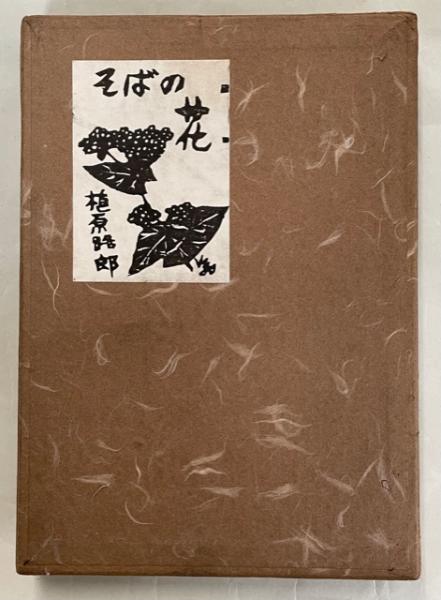 そばの
花
植原路郎